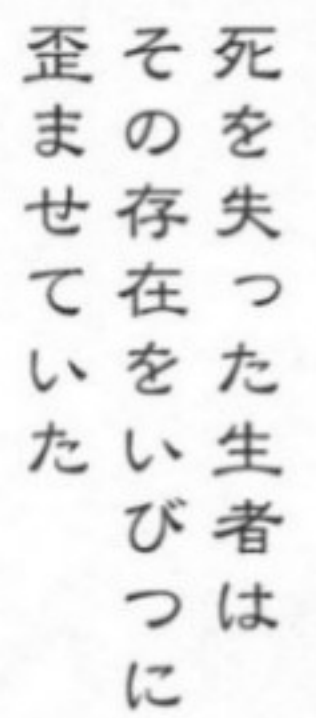 死を失った生者は
その存在をいびつに
歪ませていた